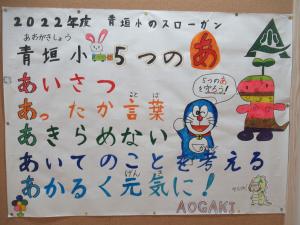 2022年度 青垣小のスローガン
あおがきしょう
青垣小 5つのあ
小
5つのあを守ろう!
あいさつ
あったか言葉
ことば
あきらめない
あいてのことを考える
かんが
あかるく元気に!
げんき
AOGAKI